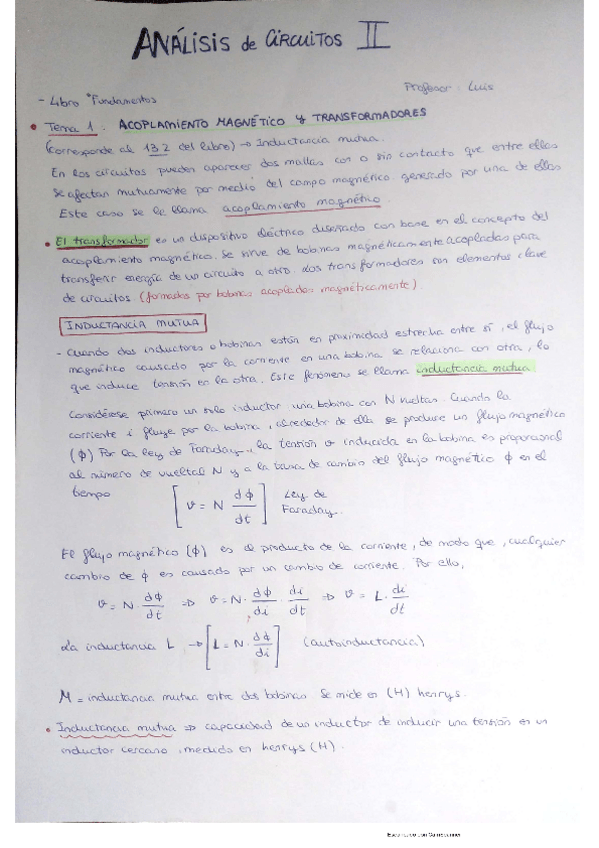 ANÁLISIS de CIRCUITOS II
Profesor: Luis
- Libro "Fundamentos
• Tema 1: ACOPLAMIENTO MAGNÉTICO Y TRANSFORMADORES
(corresponde al 13.2 del libro) → Inductancia mutua.
En los circuitos pueden aparecer dos mallas con o sin contacto que entre ellas
se afectan mutuamente por medio del campo magnético generado por una de ellas
Este caso se la llama acoplamiento magnético.
• El transformador es un dispositivo eléctrico diseñado con base en el concepto del
acoplamiento magnético. Se sirve de bobinas magnéticamente acopladas para
transferir energía de un circuito a otro. Los transformadores son elementos clave
de circuitos. (formados por bobinas acopladas magnéticamente).
INDUCTANCIA MUTUA
- Cuando dos inductores o bobinas están en proximidad estrecha entre sí, el flujo
magnético causado por la corriente en una bobina se relaciona con otra, lo
que induce tensión en la otra. Este fenómeno se llama inductancia mutua
Considérese primero un solo inductor una bobina con N vueltas. Cuando la
corriente i fluye por la bobina, alrededor de ella se produce un flujo magnético
(ϕ) Por la ley de Faraday, la tensión v inducida en la bobina es proporcional
al número de vueltas N y a la tasa de cambio del flujo magnético ϕ en el
tiempo [v = N dϕ/dt] Ley de Faraday.
El flujo magnético (ϕ) es el producto de la corriente, de modo que, cualquier
cambio de ϕ es causado por un cambio de corriente. Por ello,
v = N · dϕ/dt ⇒ v = N · dϕ/di · di/dt ⇒ v = L · di/dt
La inductancia L → [L = N · dϕ/di] (autoinductancia)
M = inductancia mutua entre dos bobinas Se mide en (H) henrys.
• Inductancia mutua ⇒ capacidad de un inductor de inducir una tensión en un
inductor cercano, medido en henrys (H).
Escaneado con CamScanner